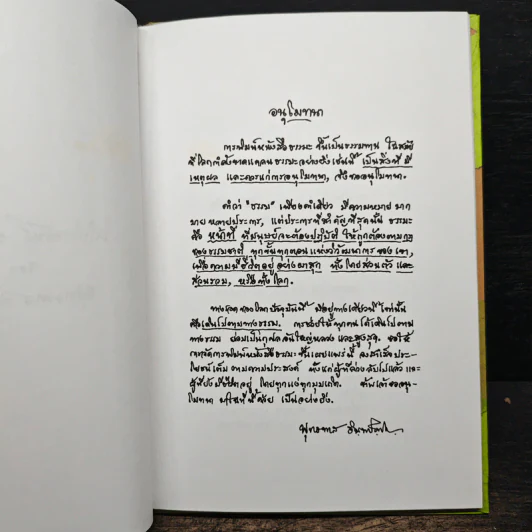 อนุโมทนา
การพิมพ์หนังสือธรรมะ ขึ้นเป็นธรรมทาน ในสมัย
ที่โลกกำลังขาดแคลนธรรมะอย่างยิ่ง เช่นนี้ เป็นสิ่งที่ มี
เหตุผล และควรแก่การอนุโมทนา, จึงขออนุโมทนา.
คำว่า "ธรรม" เพียงคำเดียว มีความหมาย มาก
มาย หลายประการ, แต่ประการที่สำคัญที่สุดนั้น ธรรมะ
คือ หน้าที่ ที่มนุษย์จะต้องปฏิบัติ ให้ถูกต้องตามกฎ
ของธรรมชาติ ทุกขั้นทุกตอน แห่งวิวัฒนาการ ของ เขา,
เพื่อความมีชีวิตอยู่ อย่างผาสุก ทั้งโดยส่วนตัว และ
ส่วนรวม, หรือทั้งโลก.
ทางรอด ของโลก ปัจจุบันนี้ มีอยู่ทางเดียวนี้ เท่านั้น
คือเดินไปตามทางธรรม. การช่วยให้ทุกคน ได้เดินไปตาม
ทางธรรม ย่อมเป็นกุศลอันใหญ่หลวง และสูงสุด. ขอให้
การจัดการพิมพ์หนังสือธรรมะ ขึ้นเผยแพร่นี้ จงสำเร็จประ-
โยชน์เต็ม ตามความประสงค์ ทั้งแก่ผู้ที่ล่วงลับไปแล้ว และ
ผู้ที่ยังมีชีวิตอยู่ โดยทุกแง่ทุกมุมเถิด. ข้าพเจ้าขออนุ-
โมทนา ไว้ในที่นี้ด้วย เป็นอย่างยิ่ง.
พุทธทาส อินทปัญโญ